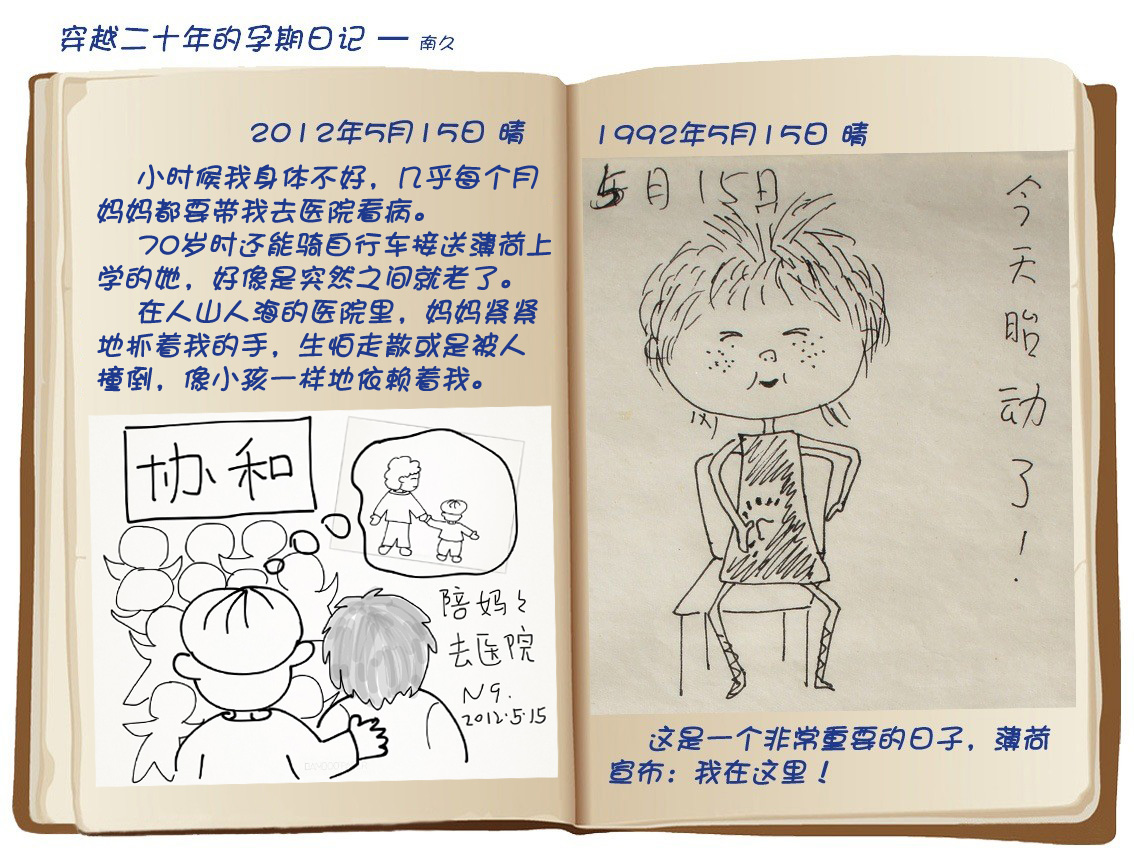 穿越二十年的孕期日记 — 南久
2012年5月15日 晴
小时候我身体不好，几乎每个月
妈妈都要带我去医院看病。
70岁时还能骑自行车接送薄荷上
学的她，好像是突然之间就老了。
在人山人海的医院里，妈妈紧紧
地抓着我的手，生怕走散或是被人
撞倒，像小孩一样地依赖着我。
协和
陪妈々
去医院
N9.
2012·5·15
1992年5月15日 晴
5月15日
今天胎动了！
这是一个非常重要的日子，薄荷
宣布：我在这里！